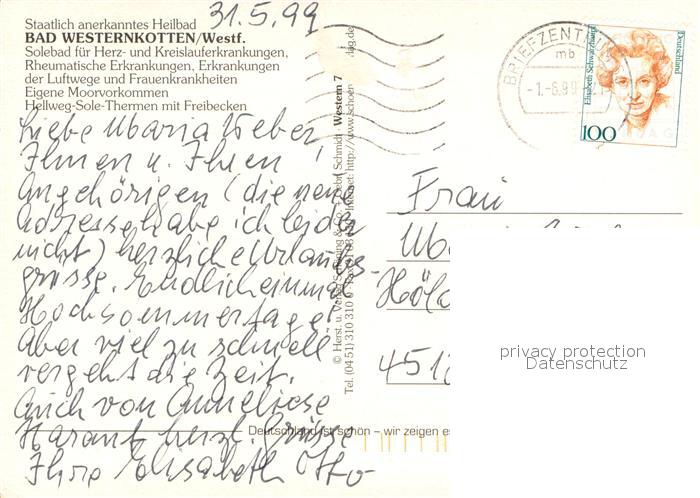 31.5.99
Staatlich anerkanntes Heilbad
BAD WESTERNKOTTEN/Westf.
Solebad für Herz- und Kreislauferkrankungen,
Rheumatische Erkrankungen, Erkrankungen
der Luftwege und Frauenkrankheiten
Eigene Moorvorkommen
Hellweg-Sole-Thermen mit Freibecken
Liebe Maria Weber,
Ihnen u. Ihren
Angehörigen (die neue
Adresse habe ich leider
nicht) herzliche Urlaubs-
grüsse. Endlich einmal
Hochsommertage!
Aber viel zu schnell
vergeht die Zeit.
Auch von Anneliese
Harant herzl. Grüsse
Ihre Elisabeth Otto
© Herst. u. Verlag Schöning & Co. + Gebr. Schmidt · Western 7
Tel. (04 51) 310 310
Internet: http://www.schoen
.de
Deutschland ist schön – wir zeigen es
BRIEFZENTRUM
mb
-1.-6.99
Elisabeth Schwarzhaupt
Deutschland
100
Frau
451
privacy protection
Datenschutz